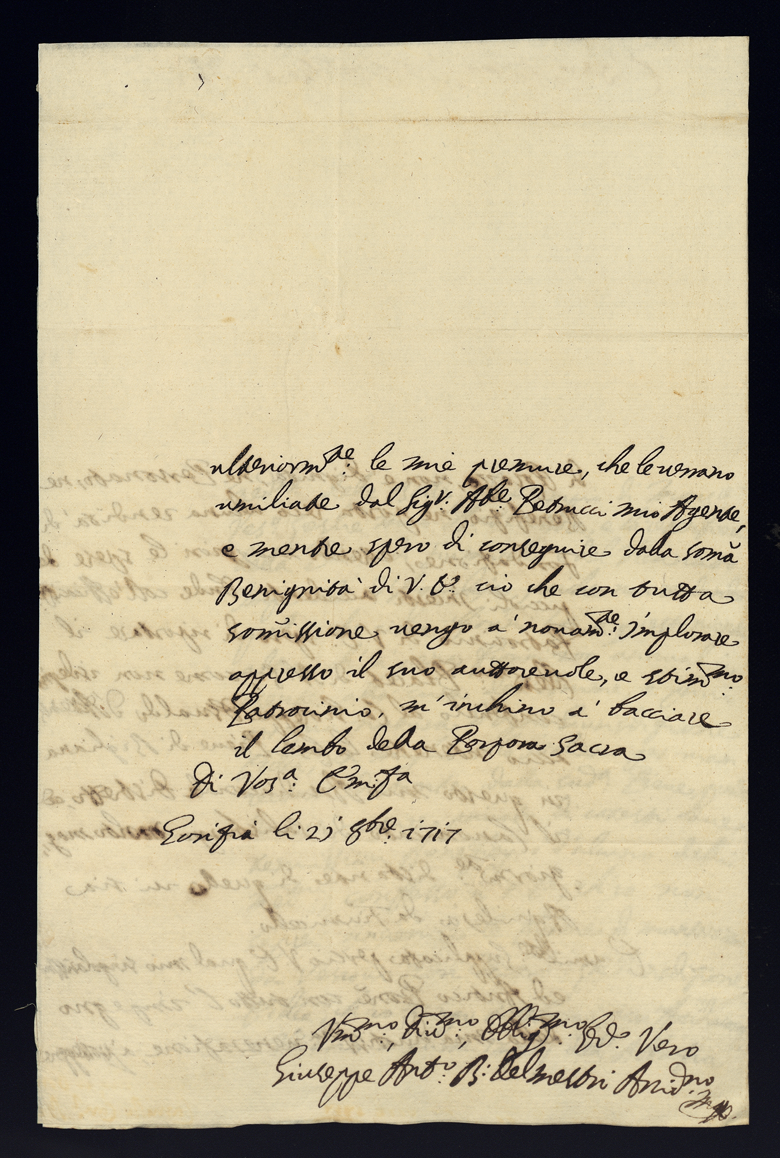 ulteriorm.te le mie premure, che le verrano
umiliate dal Sig.r Ab.e Petrucci mio Agente,
e mentre spero di conseguire dalla somã
Benignità di V. E.a ciò che con tutta
som̃issione vengo à novam.te Implorare
appresso il suo auttorevole, e stim.mo
Patrocinio, m'inchino à bacciare
il lembo della Porpora Sacra
Di Vos.a Em.za
Gorizia li 23 8bre 1717
Um.mo, Div.mo, Obblig.mo Ser.e Vero
Giuseppe Ant.o B: Delmestri